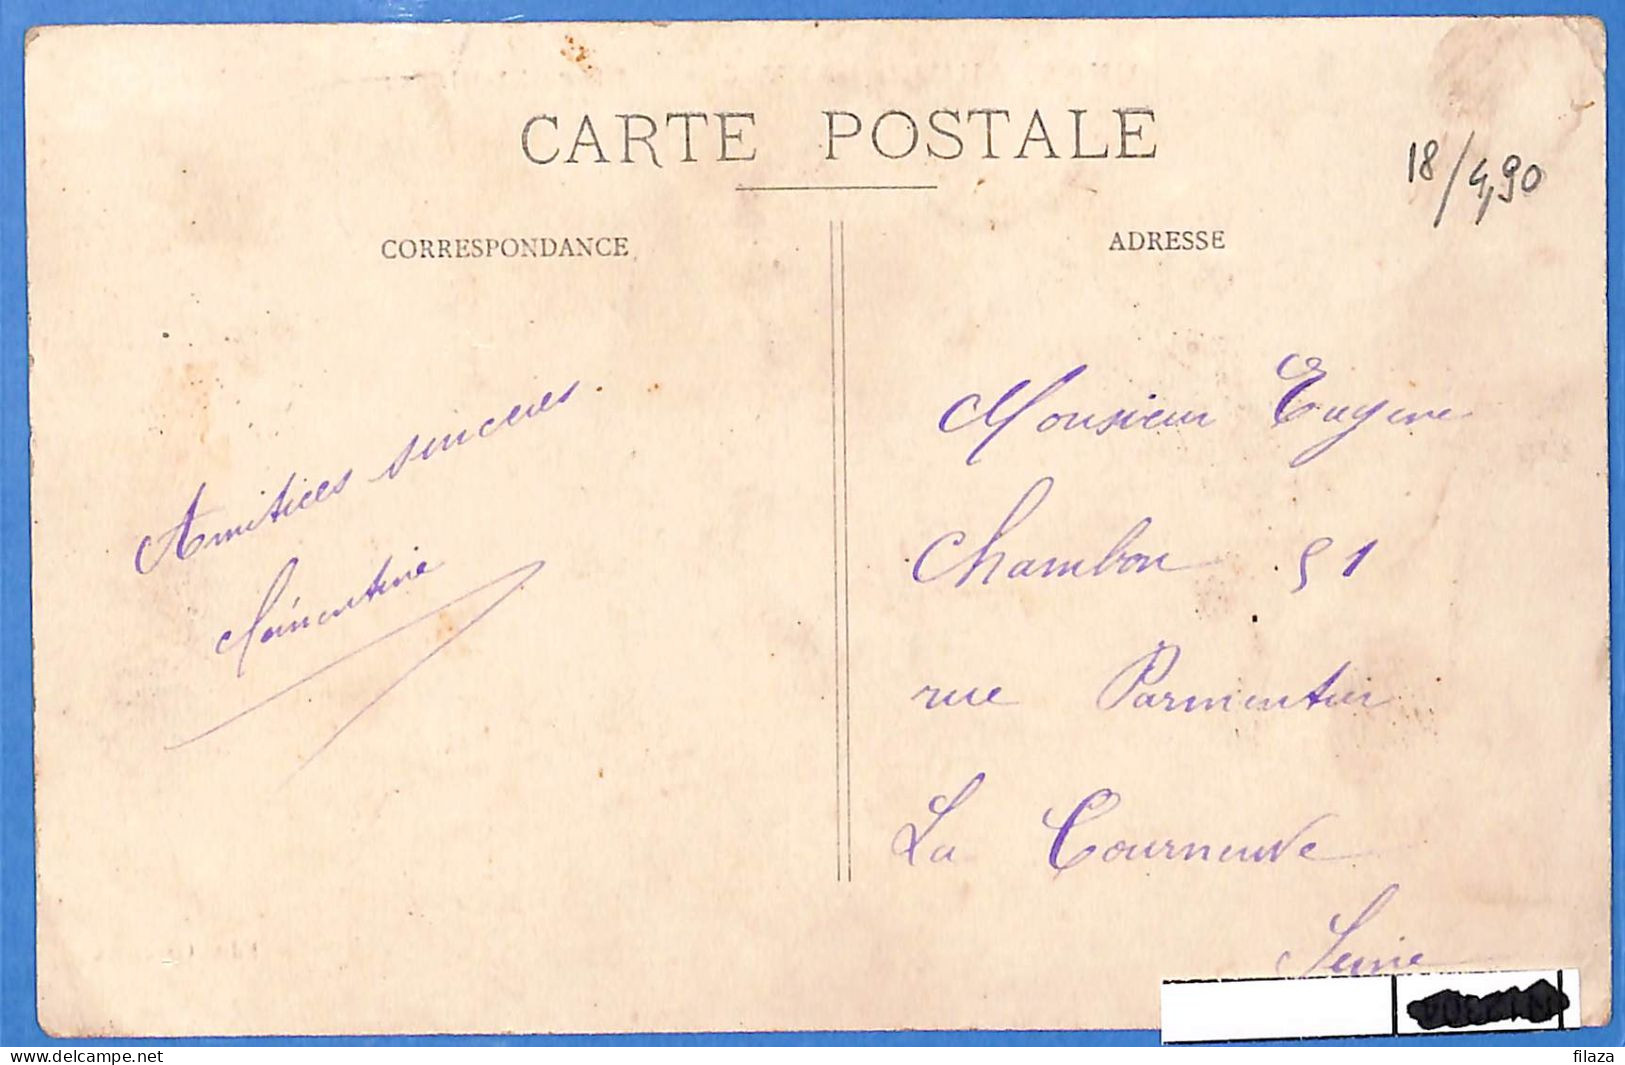 CARTE POSTALE
18/4,90
CORRESPONDANCE
ADRESSE
Amitiées sincères
Clémentine
Monsieur Eugene
Chambon 51
rue Parmentier
La Courneuve
Seine
delcampe.net
filaza